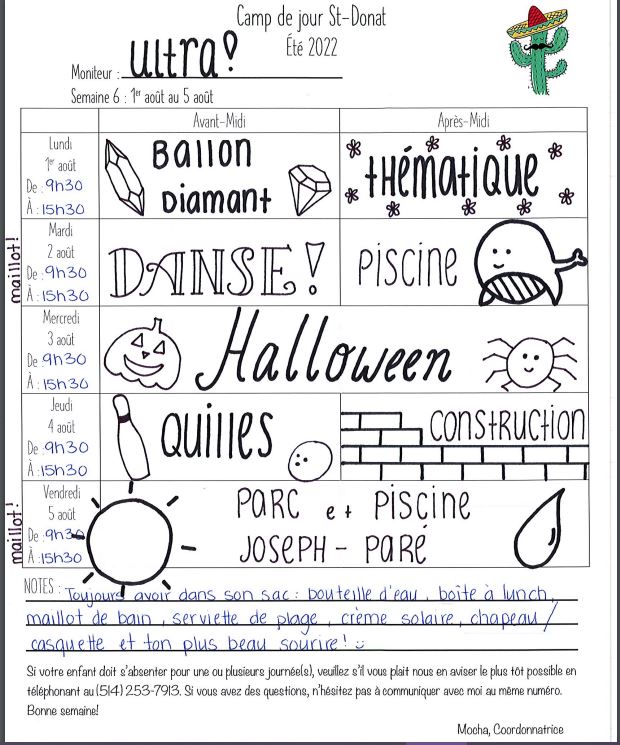 Camp de jour St-Donat
Été 2022
Moniteur : ultra!
Semaine 6 : 1er août au 5 août
Avant-Midi Après-Midi
Lundi
1er août
De : 9h30
À : 15h30
Ballon
Diamant
thématique
maillot!
Mardi
2 août
De : 9h30
À : 15h30
DANSE!
Piscine
Mercredi
3 août
De : 9h30
À : 15h30
Halloween
Jeudi
4 août
De : 9h30
À : 15h30
Quilles
construction
maillot!
Vendredi
5 août
De : 9h30
À : 15h30
Parc et Piscine
Joseph-Paré
NOTES : Toujours avoir dans son sac : bouteille d'eau, boîte à lunch,
maillot de bain, serviette de plage, crème solaire, chapeau/
casquette et ton plus beau sourire! :)
Si votre enfant doit s'absenter pour une ou plusieurs journée(s), veuillez s'il vous plait nous en aviser le plus tôt possible en
téléphonant au (514) 253-7913. Si vous avez des questions, n'hésitez pas à communiquer avec moi au même numéro.
Bonne semaine!
Mocha, Coordonnatrice